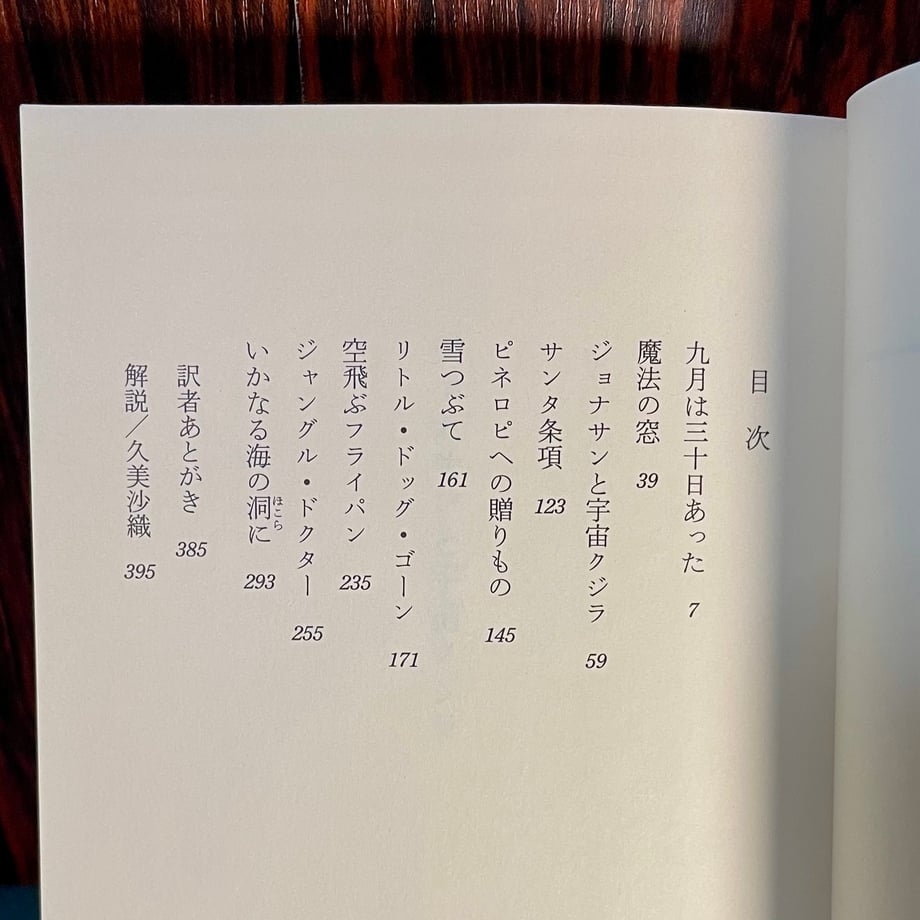 目次
九月は三十日あった 7
魔法の窓 39
ジョナサンと宇宙クジラ 59
サンタ条項 123
ピネロピへの贈りもの 145
雪つぶて 161
リトル・ドッグ・ゴーン 171
空飛ぶフライパン 235
ジャングル・ドクター 255
いかなる海の洞に 293
ほこら
訳者あとがき 385
解説／久美沙織 395